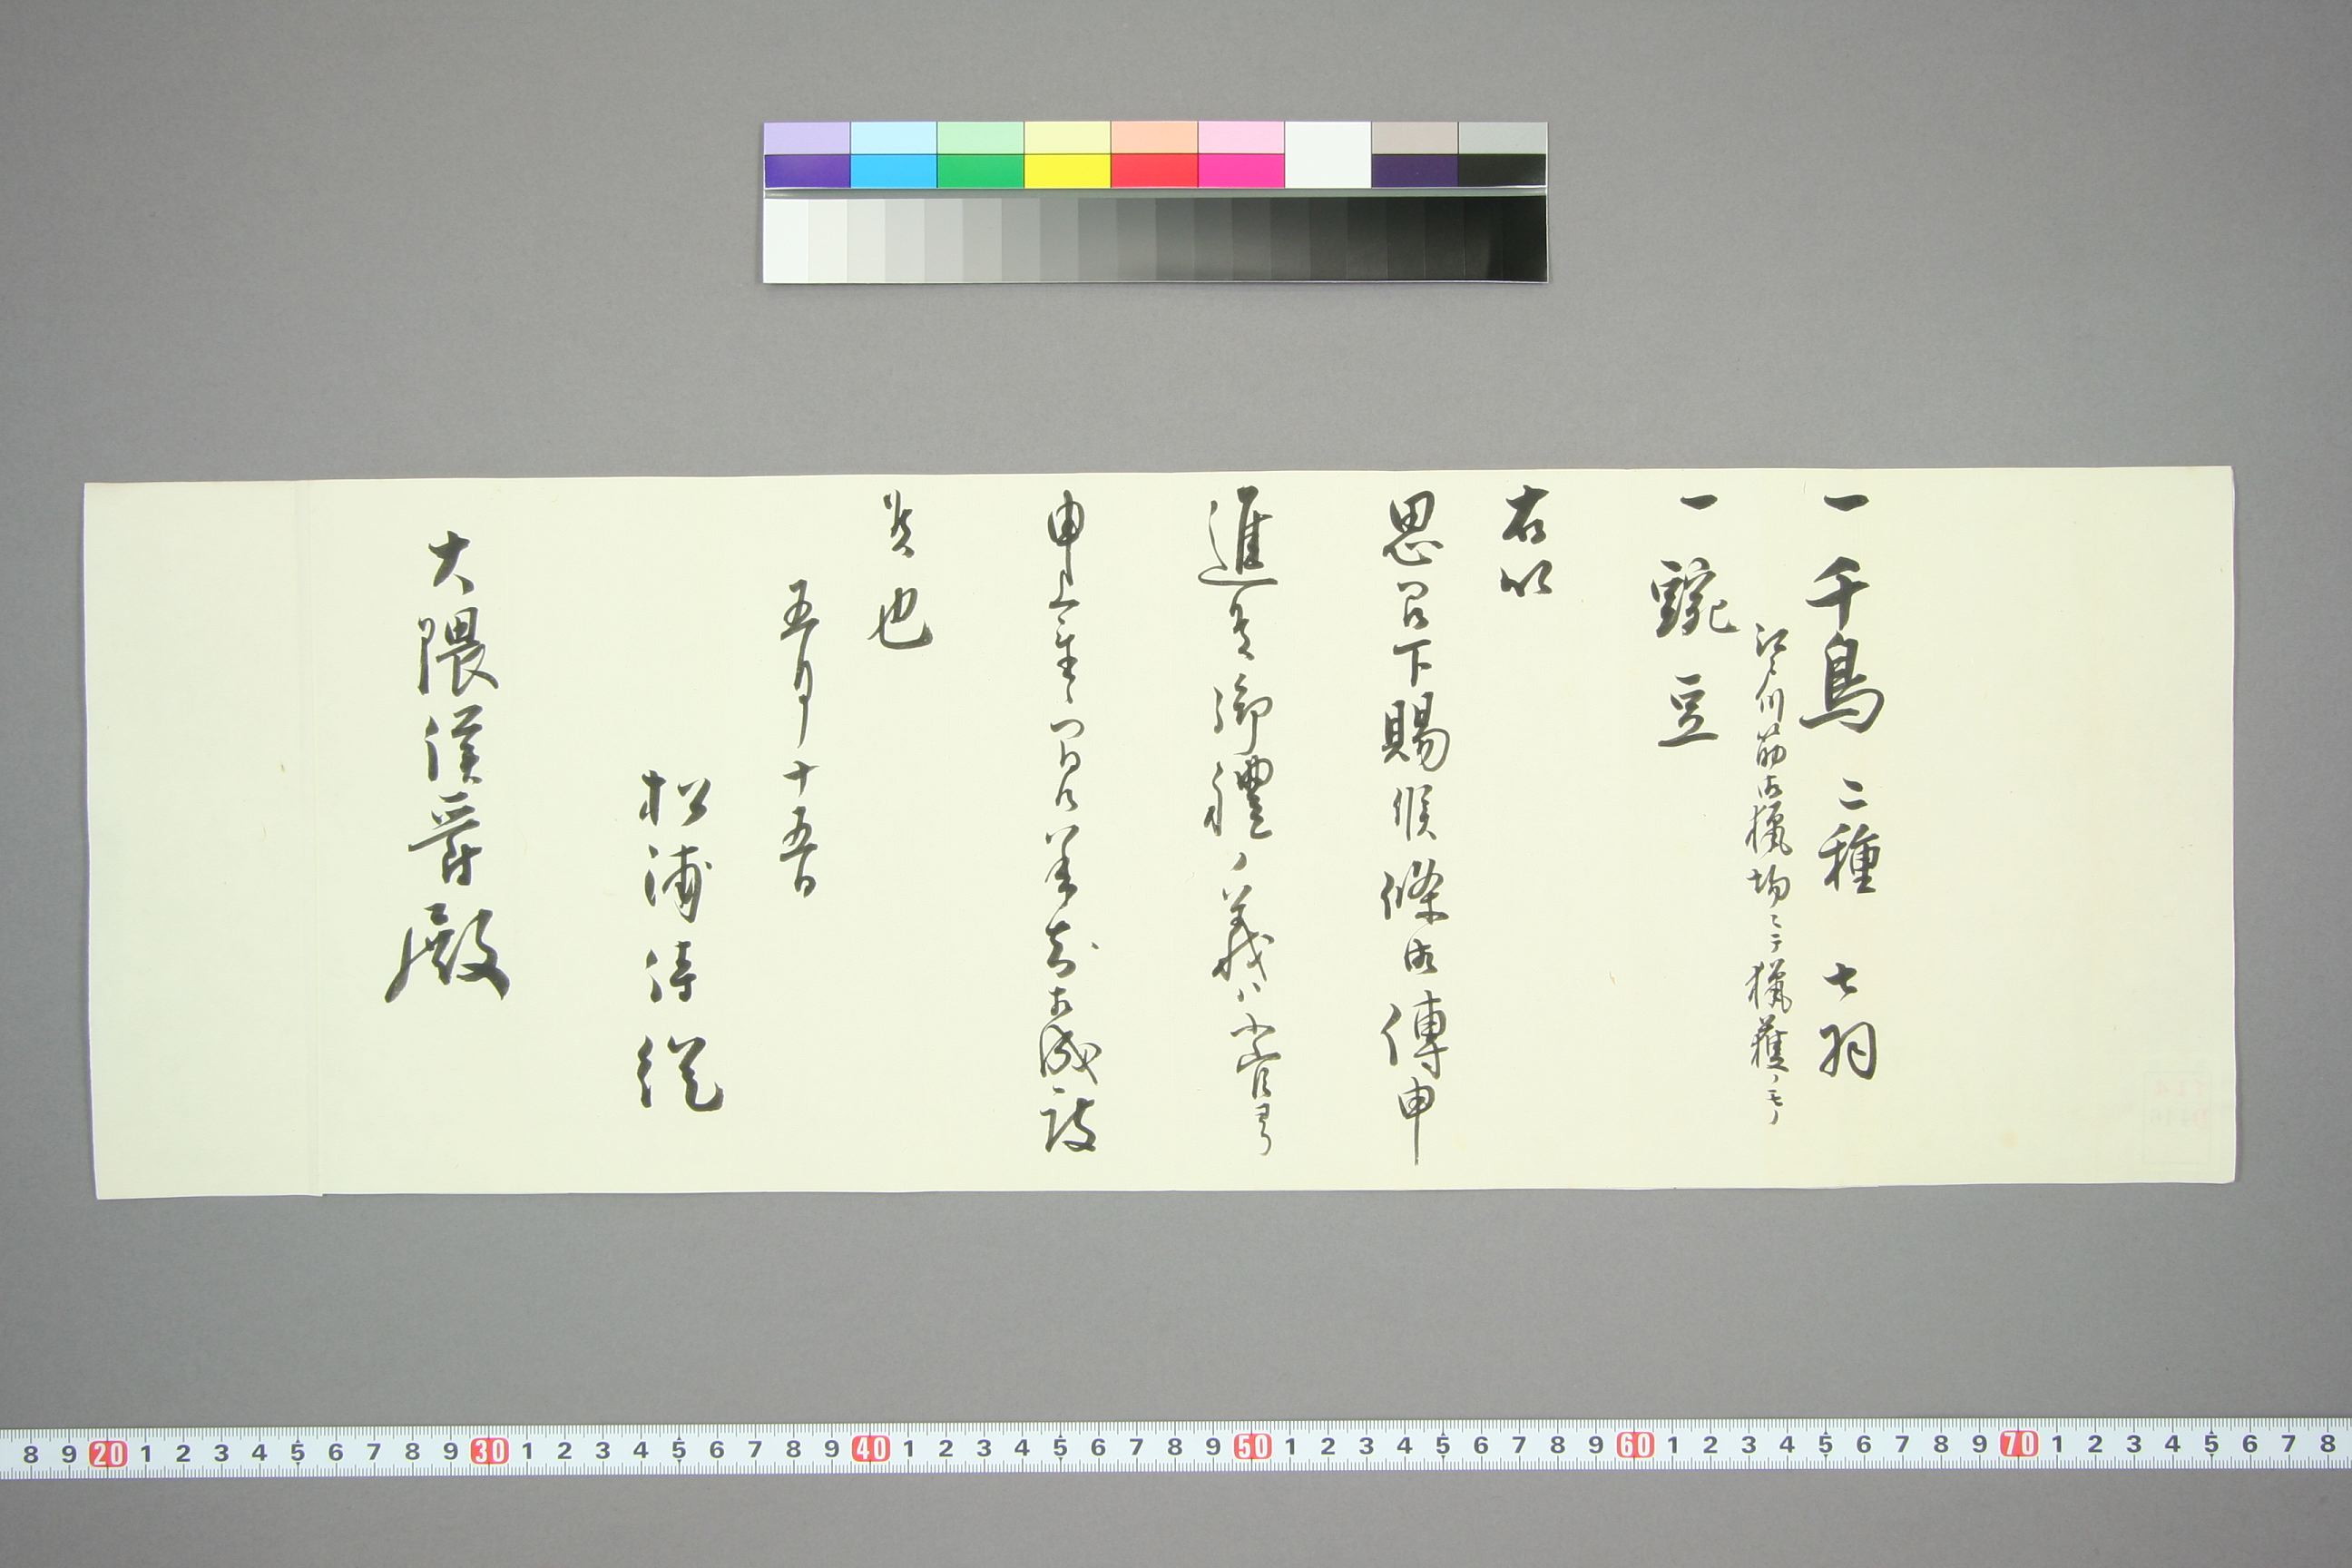 一 千鳥 二種 七羽
江戸川筋御猟場ニテ猟獲ノモノ
一 豌豆
右以
思召下賜候條御傳申
進候御禮ノ義ハ小官ヨリ
申上置
候也
五月十五日
松浦侍従
大隈侯爵殿
8 9 20 1 2 3 4 5 6 7 8 9 30 1 2 3 4 5 6 7 8 9 40 1 2 3 4 5 6 7 8 9 50 1 2 3 4 5 6 7 8 9 60 1 2 3 4 5 6 7 8 9 70 1 2 3 4 5 6 7 8